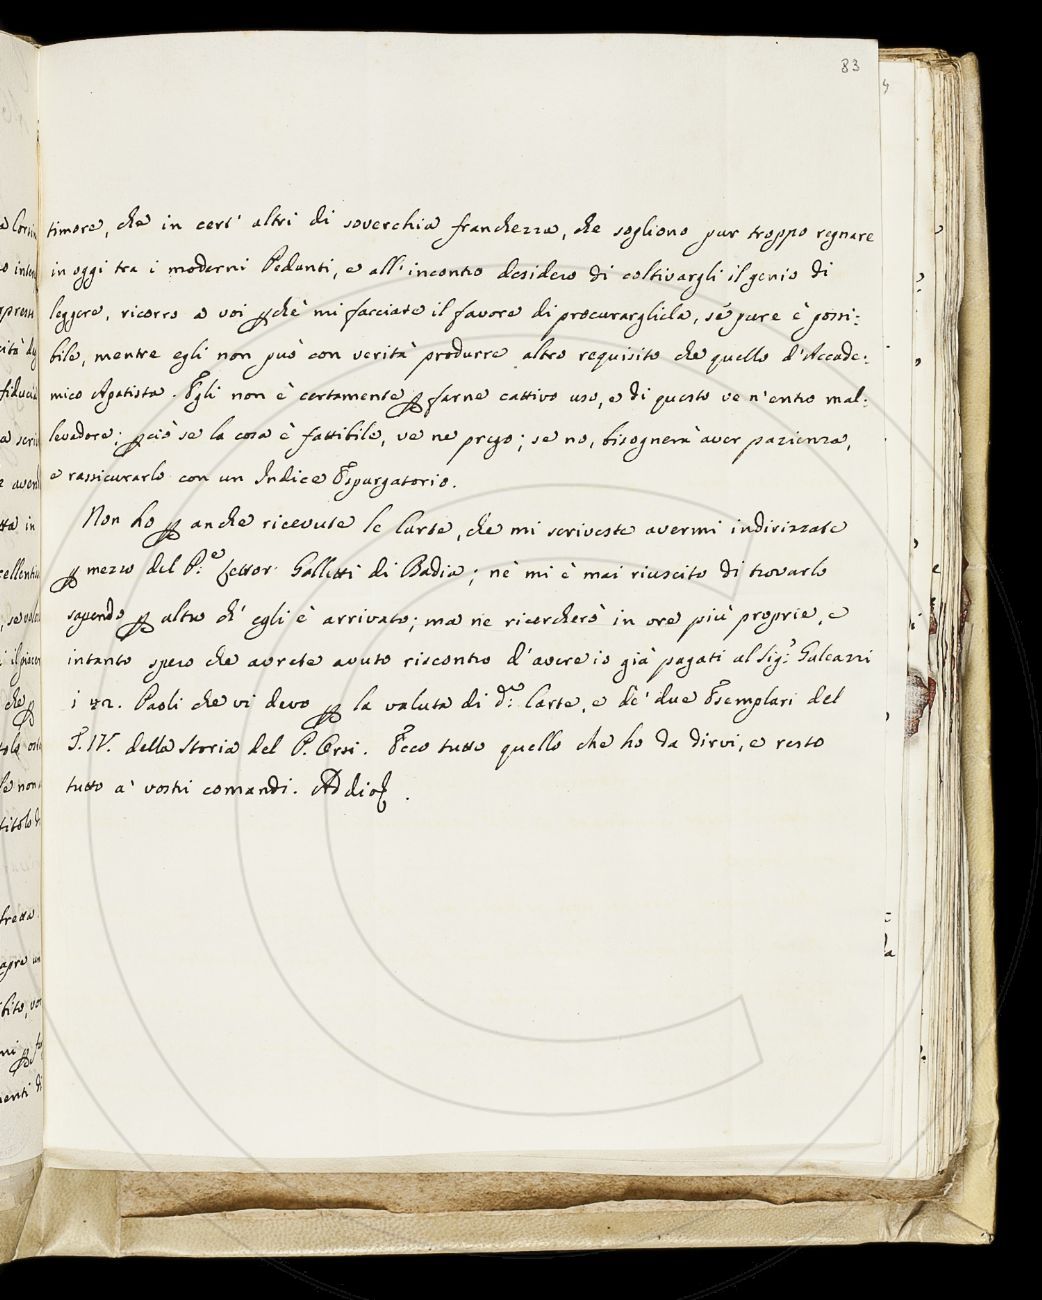 83
timore, che in cert' altri di soverchia franchezza, che sogliono pur troppo regnare
in oggi tra i moderni Pedanti, e all' incontro desidero di coltivargli il genio di
leggere, ricorro a voi pchè mi facciate il favore di procurargliela, se pure è possi:
bile, mentre egli non può con verità produrre altro requisito che quello d'Accade:
mico Apatista. Egli non è certamente p farne cattivo uso, e di questo ve n'entro mal:
levadore; pciò se la cosa è fattibile, ve ne prego; se no, bisognerà aver pazienza,
e rassicurarlo con un Indice Espurgatorio.
Non ho p anche ricevute le Carte, che mi scriveste avermi indirizzate
p mezzo del P.e Lettor Galletti di Badia; nè mi è mai riuscito di trovarlo
sapendo p altro ch' egli è arrivato; ma ne ricercherò in ore più proprie, e
intanto spero che avrete avuto riscontro d'avere io già pagati al Sig.r Galeazzi
i Paoli che vi devo p la valuta di d.e Carte, e de' due Esemplari del
T. IV. della Storia del P. Orsi. Ecco tutto quello che ho da dirvi, e resto
tutto a' vostri comandi. Addio.